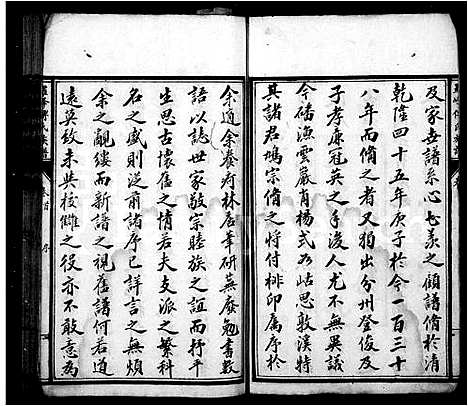 及家世譜系心甚羨之顧譜脩於清
乾隆四十五年庚子於今一百三十
八年而脩之者又獨出分州登俊及
子孝廉冠英之手後人尤不無異議
今磻漁雲麓肖楊式為岵思敦溪特
其諸君鳩宗脩之將付梓印屬序於
余道余養疴林居筆研蕪廢勉書數
語以誌世家敬宗睦族之誼而抒平
生思古懷舊之情若夫支派之繁科
名之盛則逆前諸序已詳言之無煩
余之覼縷而新譜之視舊譜何若道
遠英紋未共校讎之役亦不敢意為
卷首
序